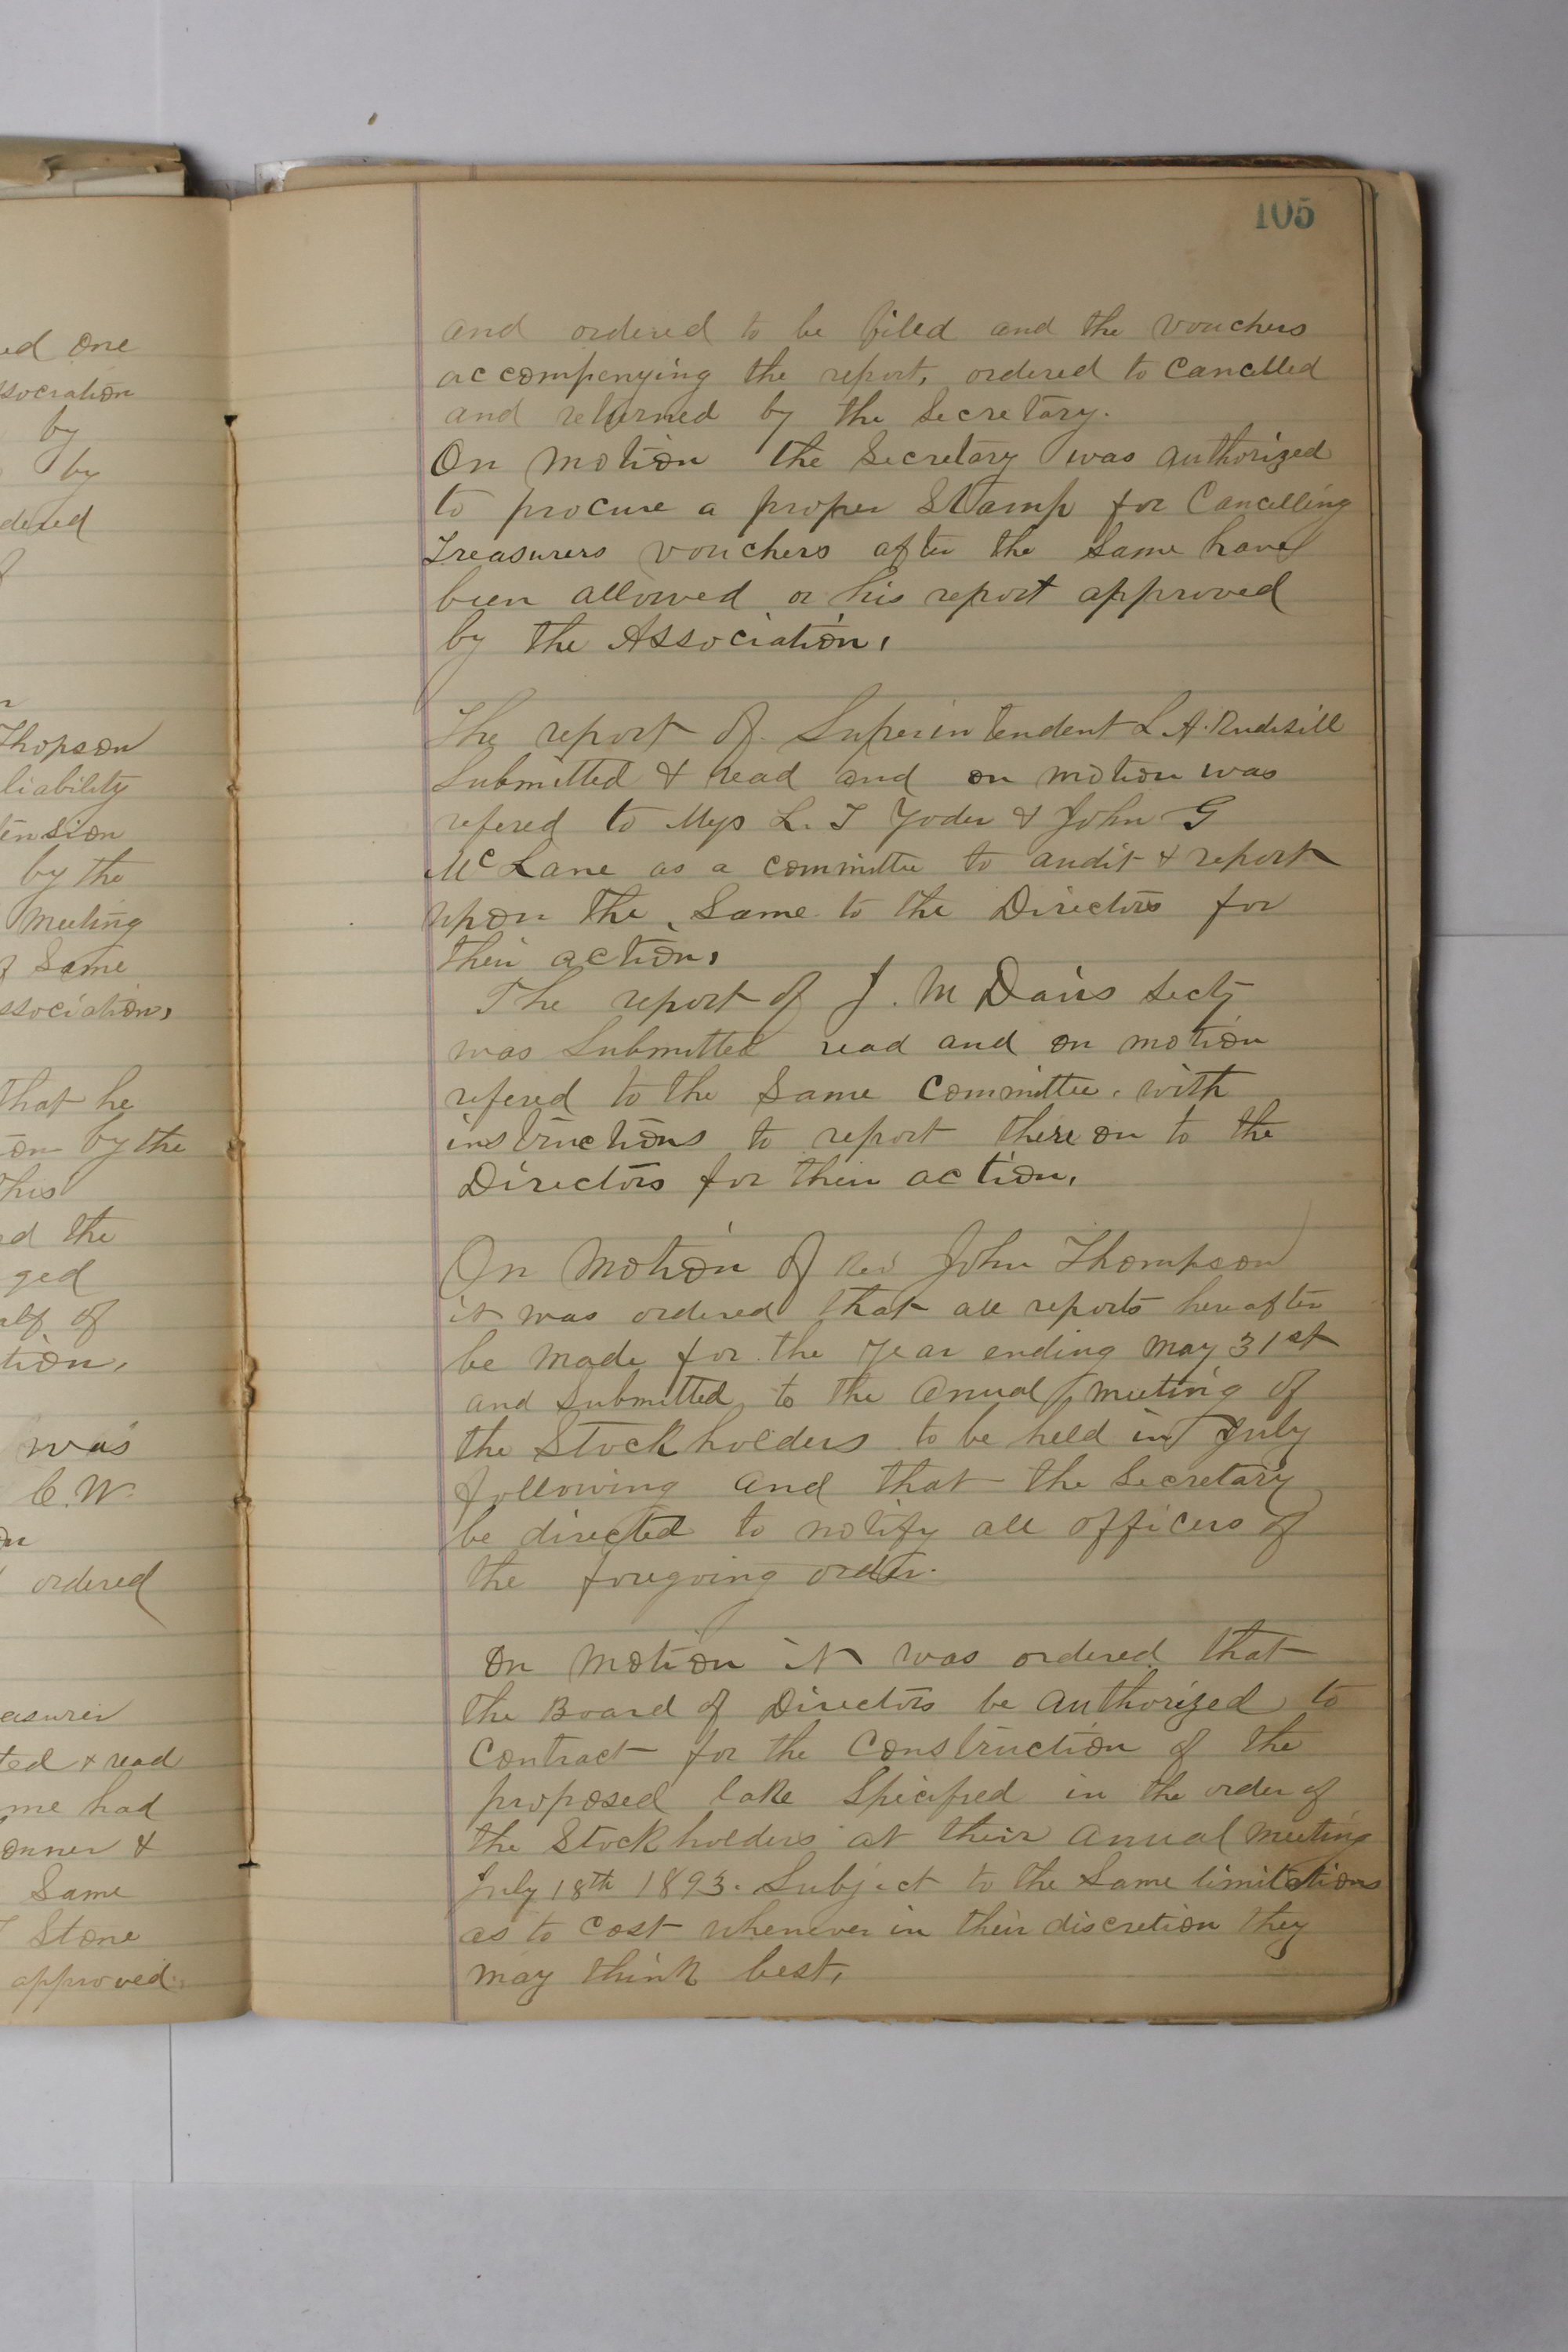 ed one
ssociation
by
by
dered
Thopson
liability
tension
by the
meeting
f Same
ssociation,
that he
on by the
this
ed the
ged
alf of
tion,
was
C. W.
on
ordered
easurer
ted & read
me had
onner &
Same
Stone
approved.
105
and ordered to be filed and the vouchers
accompenying the report, ordered to Cancelled
and returned by the Secretary.
On motion the Secretary was authorized
to procure a proper Stamp for Cancelling
Treasurers vouchers after the Same have
been allowed or his report approved
by the Association,
The report of Superintendent L. A. Rudisill
Submitted & read and on motion was
refered to L. T Yoder & John G
McLane as a committee to audit & report
upon the Same to the Directors for
their action,
The report of J. M Davis Secty
was Submitted read and on motion
refered to the Same Committee. with
instructions to report there on to the
Directors for their action,
On Motion of Rev John Thompson
it was ordered that all reports hereafter
be made for the year ending may 31st
and Submitted to the Anual meeting of
the Stockholders to be held in July
following and that the Secretary
be directed to notify all officers of
the foregoing order.
On Motion it was ordered that
the Board of Directors be authorized to
Contract for the Construction of the
proposed lake Specified in the order of
the Stockholders at their Anual meeting
July 18th 1893. Subject to the Same limitations
as to Cost whenever in their discretion they
may think best,